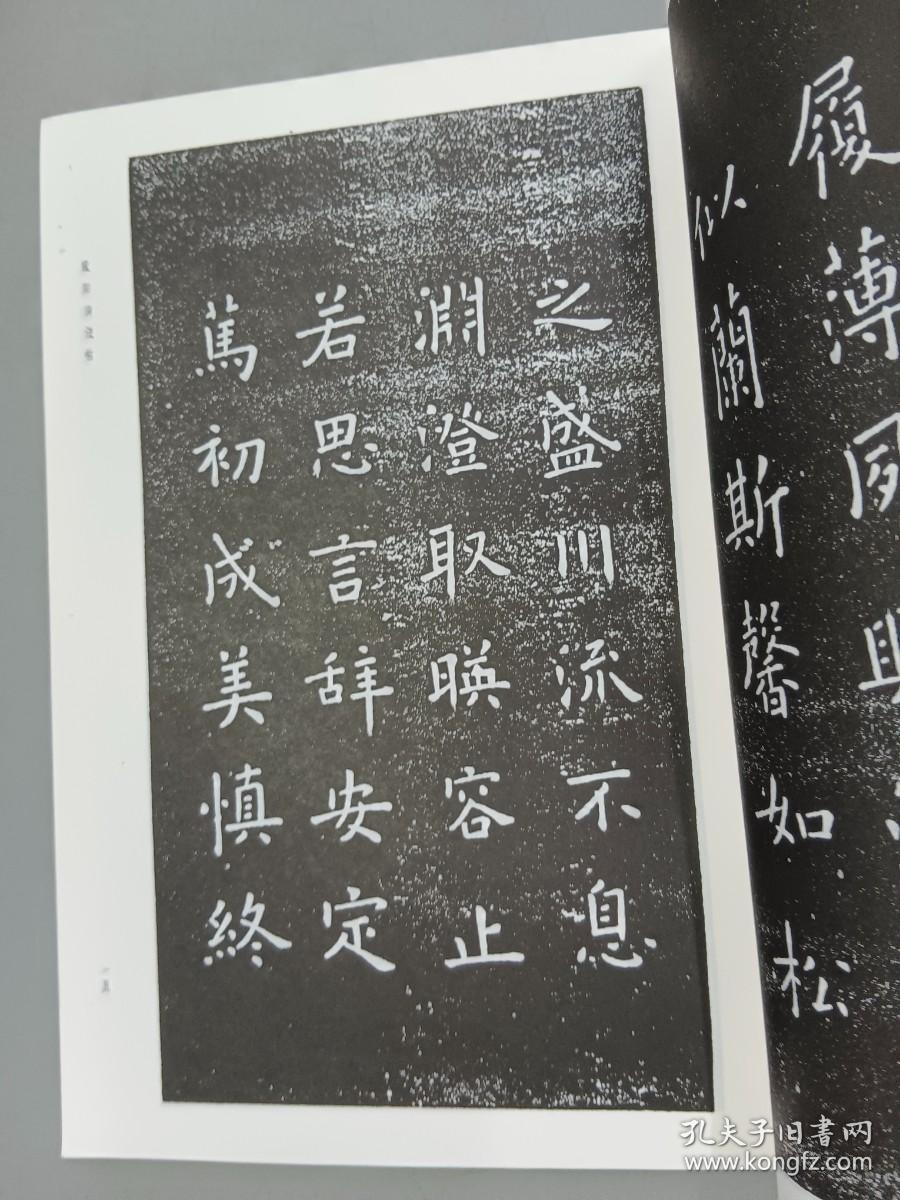 履薄夙興
似蘭斯馨如松
之盛川流不息
淵澄取暎容止
若思言辞安定
篤初成美慎終
孔夫子旧书网
www.kongfz.com